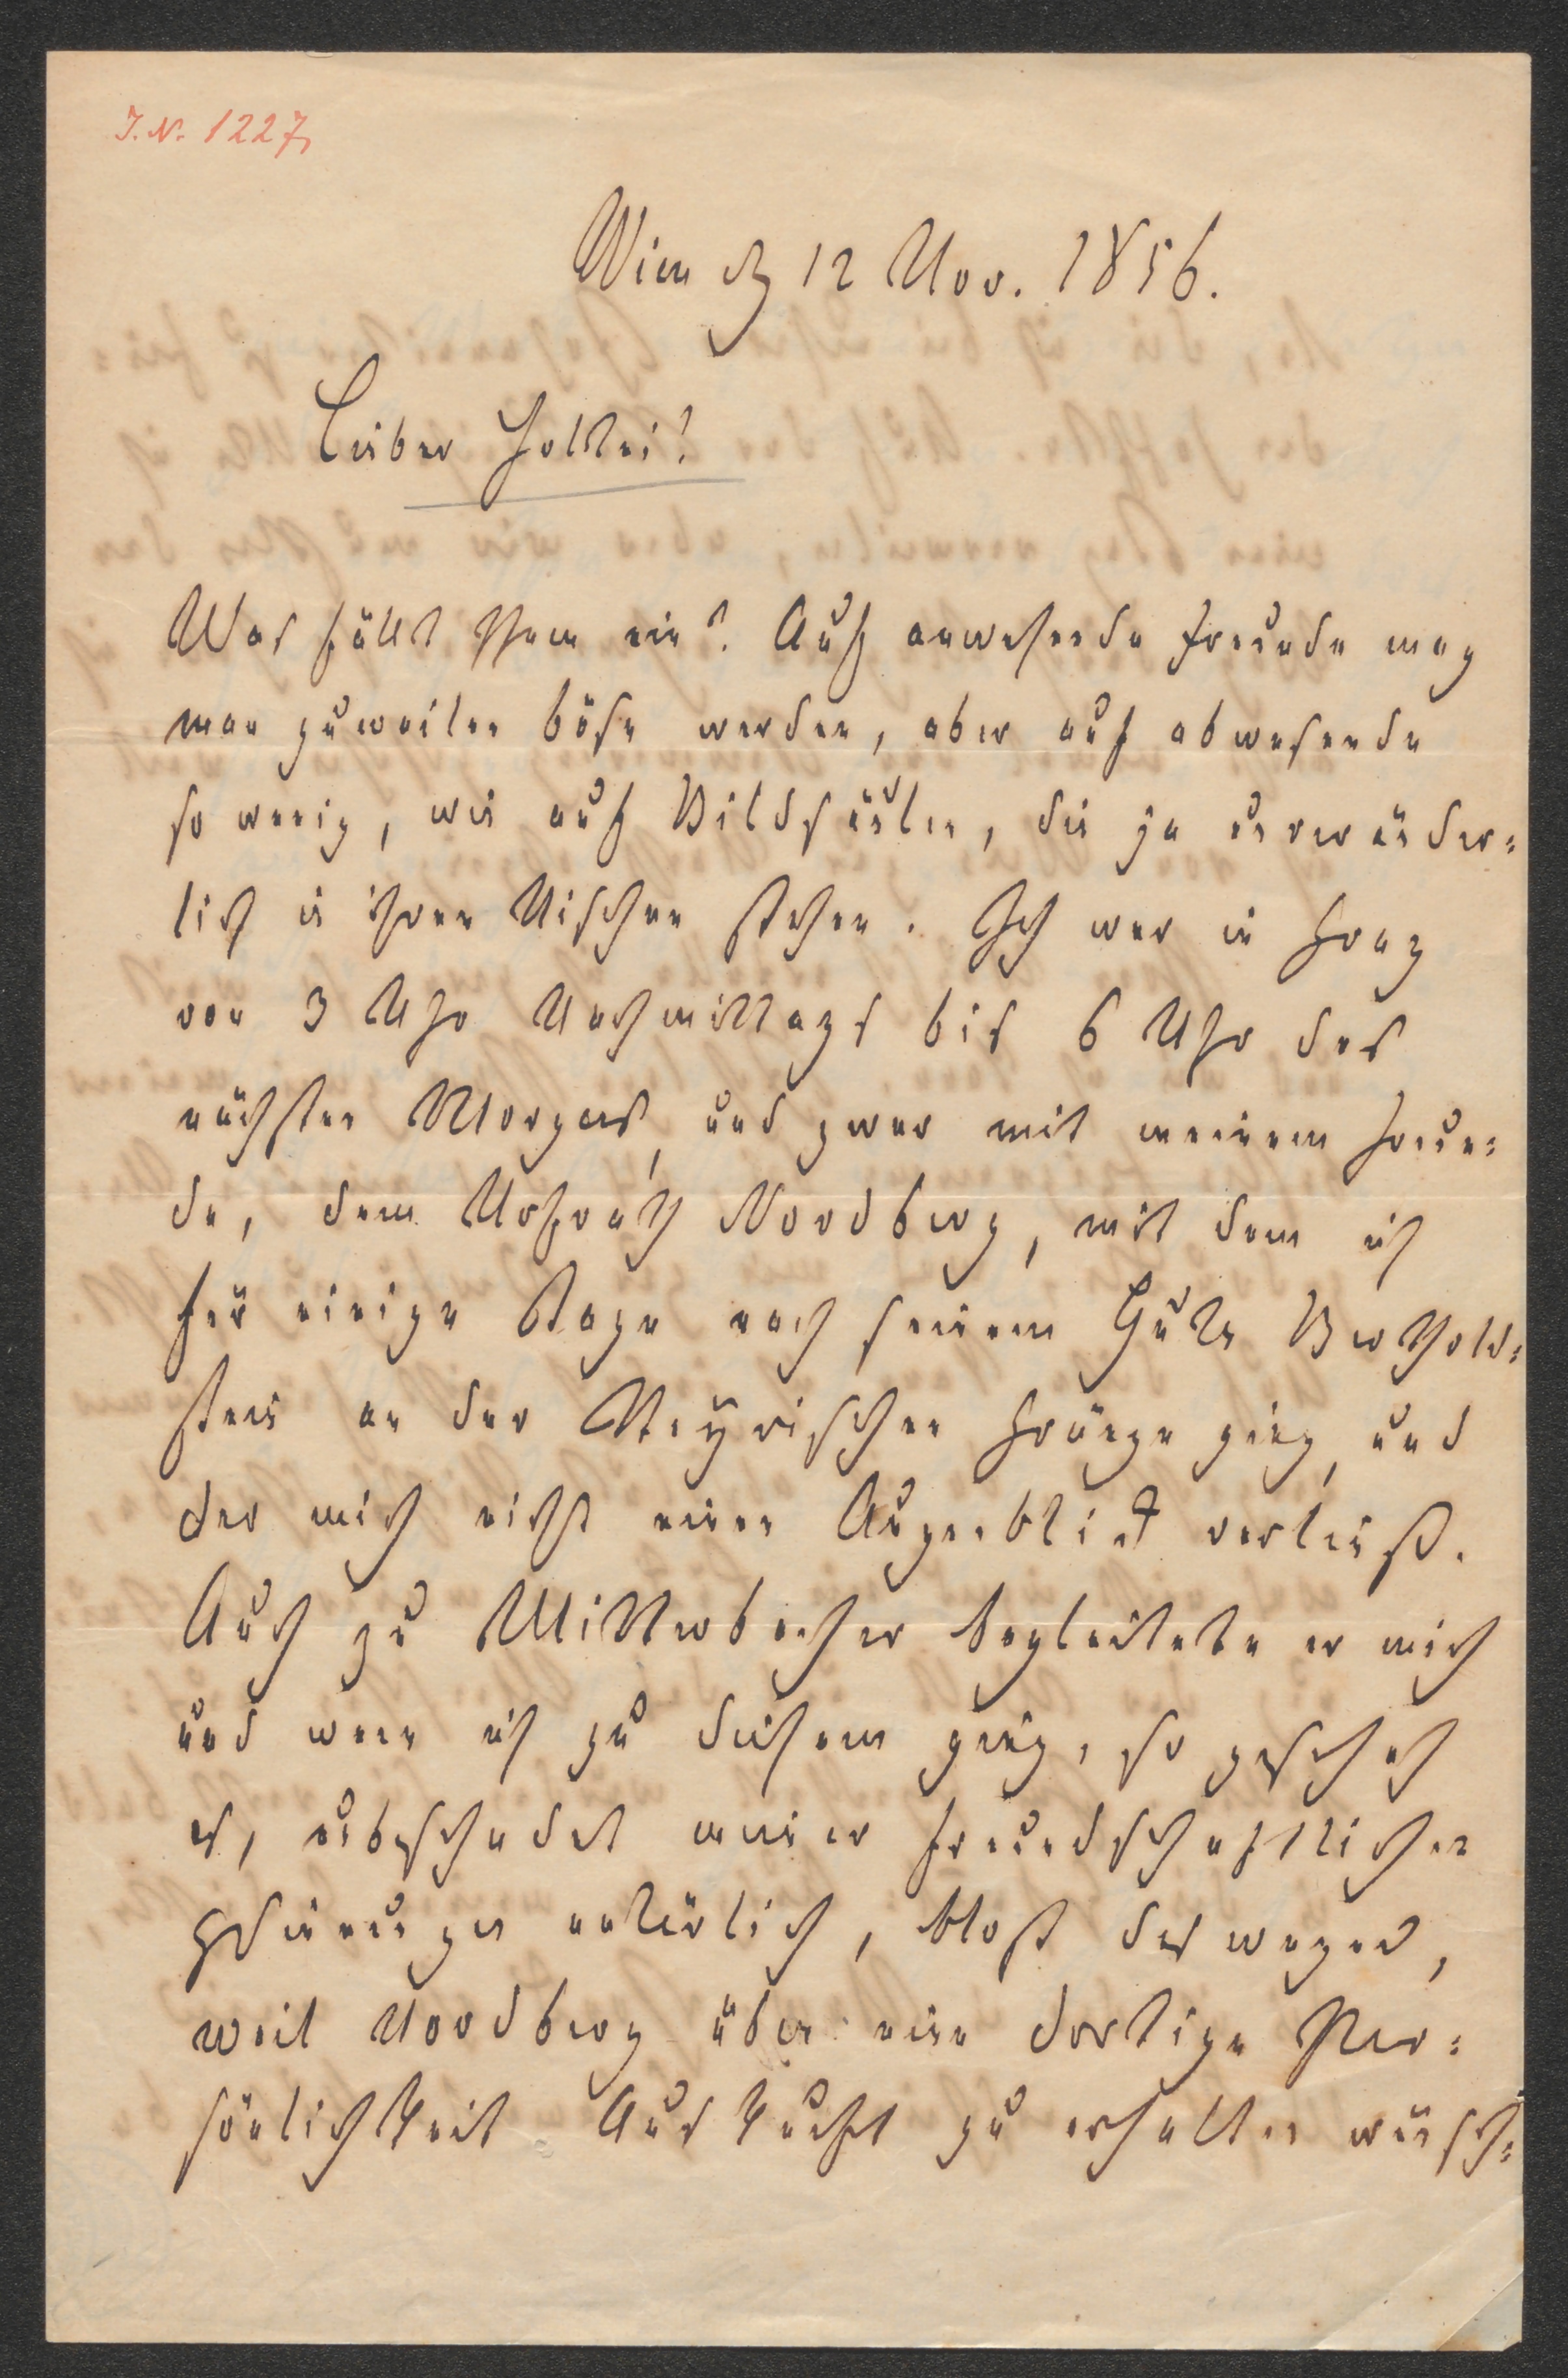 I.N. 1227
Wien d 12 Nov. 1856.
Lieber Holtei!
Was fällt Ihnen ein? Auf anwesende Freunde mag
man zuweilen böse werden, aber auf abwesende
so wenig, wie auf Bildsäulen, die ja unveränder=
lich in ihren Nischen stehen. Ich war in Graz
von 3 Uhr Nachmittags bis 6 Uhr des
nächsten Morgens, und zwar mit meinem Freun=
de, dem Nordberg, mit dem ich
für einige Tage nach seinem Gute Berthold=
stein an der Steyrischen Gränze ging, und
der mich nicht einen Augenblick verließ.
Auch zu Mitterbacher begleitete er mich
und wenn ich zu diesem ging, so geschah
es, unbeschadet meiner freundschaftlichen
Gesinnungen natürlich, bloß deswegen,
weil Nordberg über eine dortige Per=
sönlichkeit Auskunft zu erhalten wünsch=